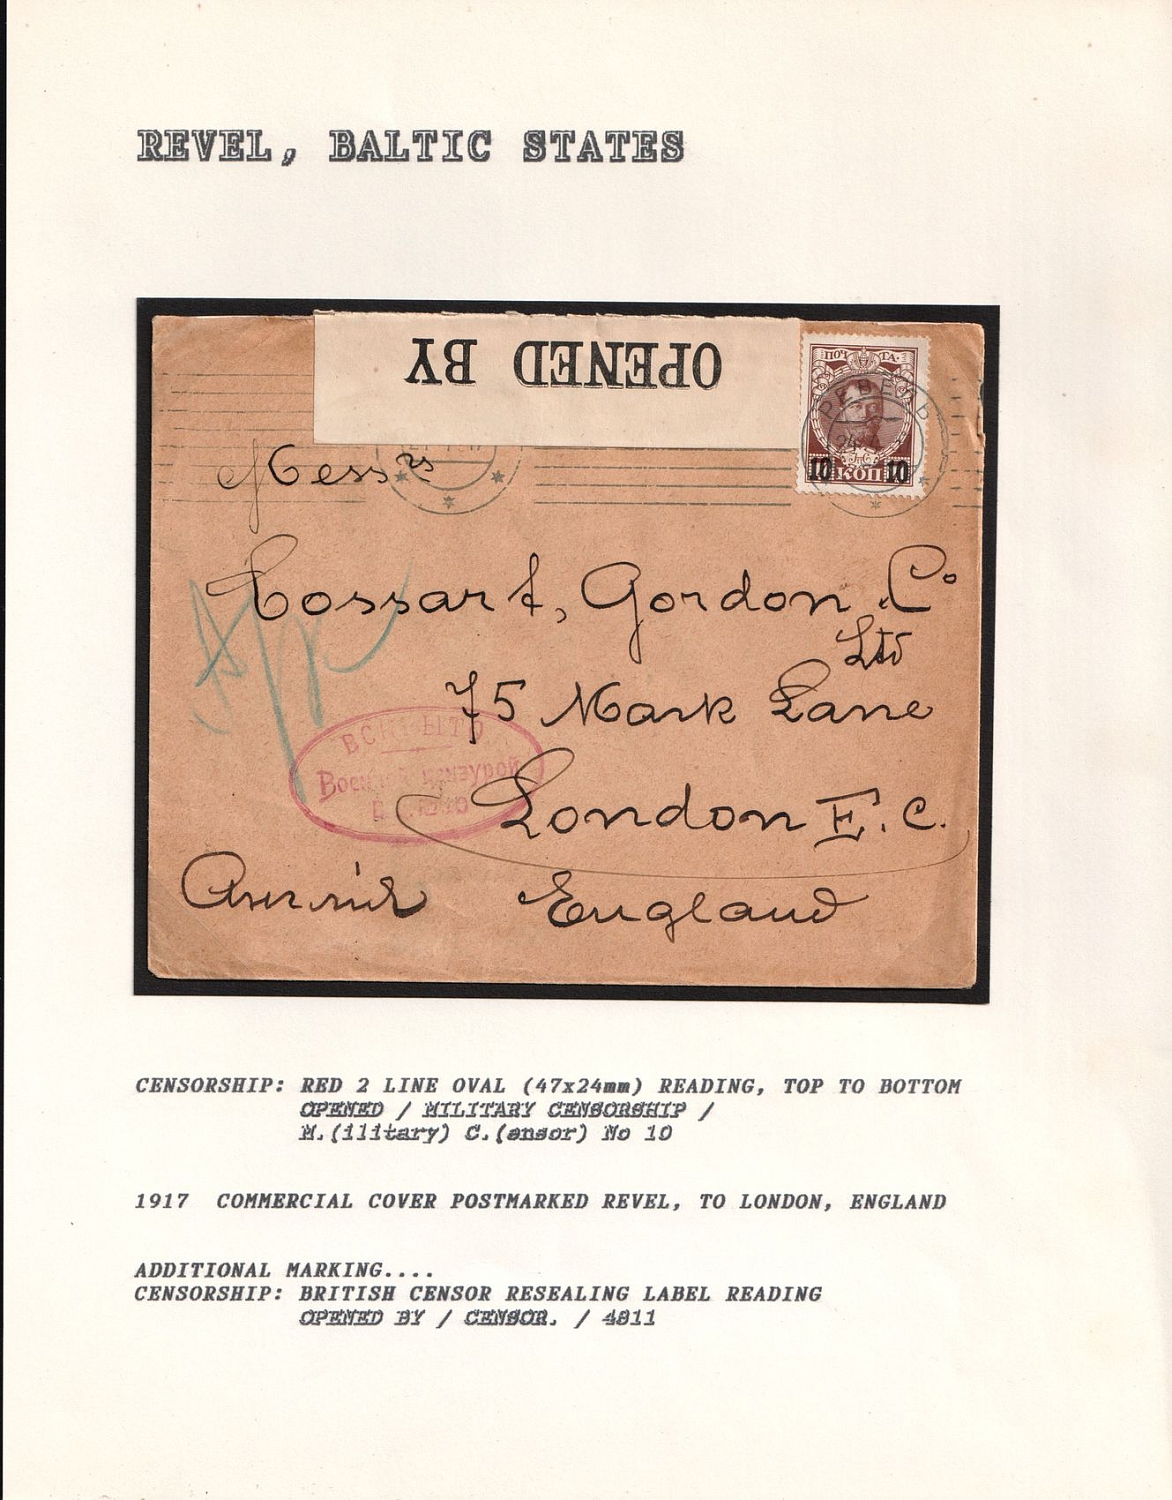 REVEL, BALTIC STATES
OPENED BY
ПОЧТА
РЕВЕЛЬ
24
10 КОП 10
Messrs
Cossart, Gordon Co
Ltd
75 Mark Lane
London E.C.
England
ВСКРЫТО
Военной цензурой
CENSORSHIP: RED 2 LINE OVAL (47x24mm) READING, TOP TO BOTTOM
OPENED / MILITARY CENSORSHIP /
M.(ilitary) C.(ensor) No 10
1917 COMMERCIAL COVER POSTMARKED REVEL, TO LONDON, ENGLAND
ADDITIONAL MARKING....
CENSORSHIP: BRITISH CENSOR RESEALING LABEL READING
OPENED BY / CENSOR. / 4811